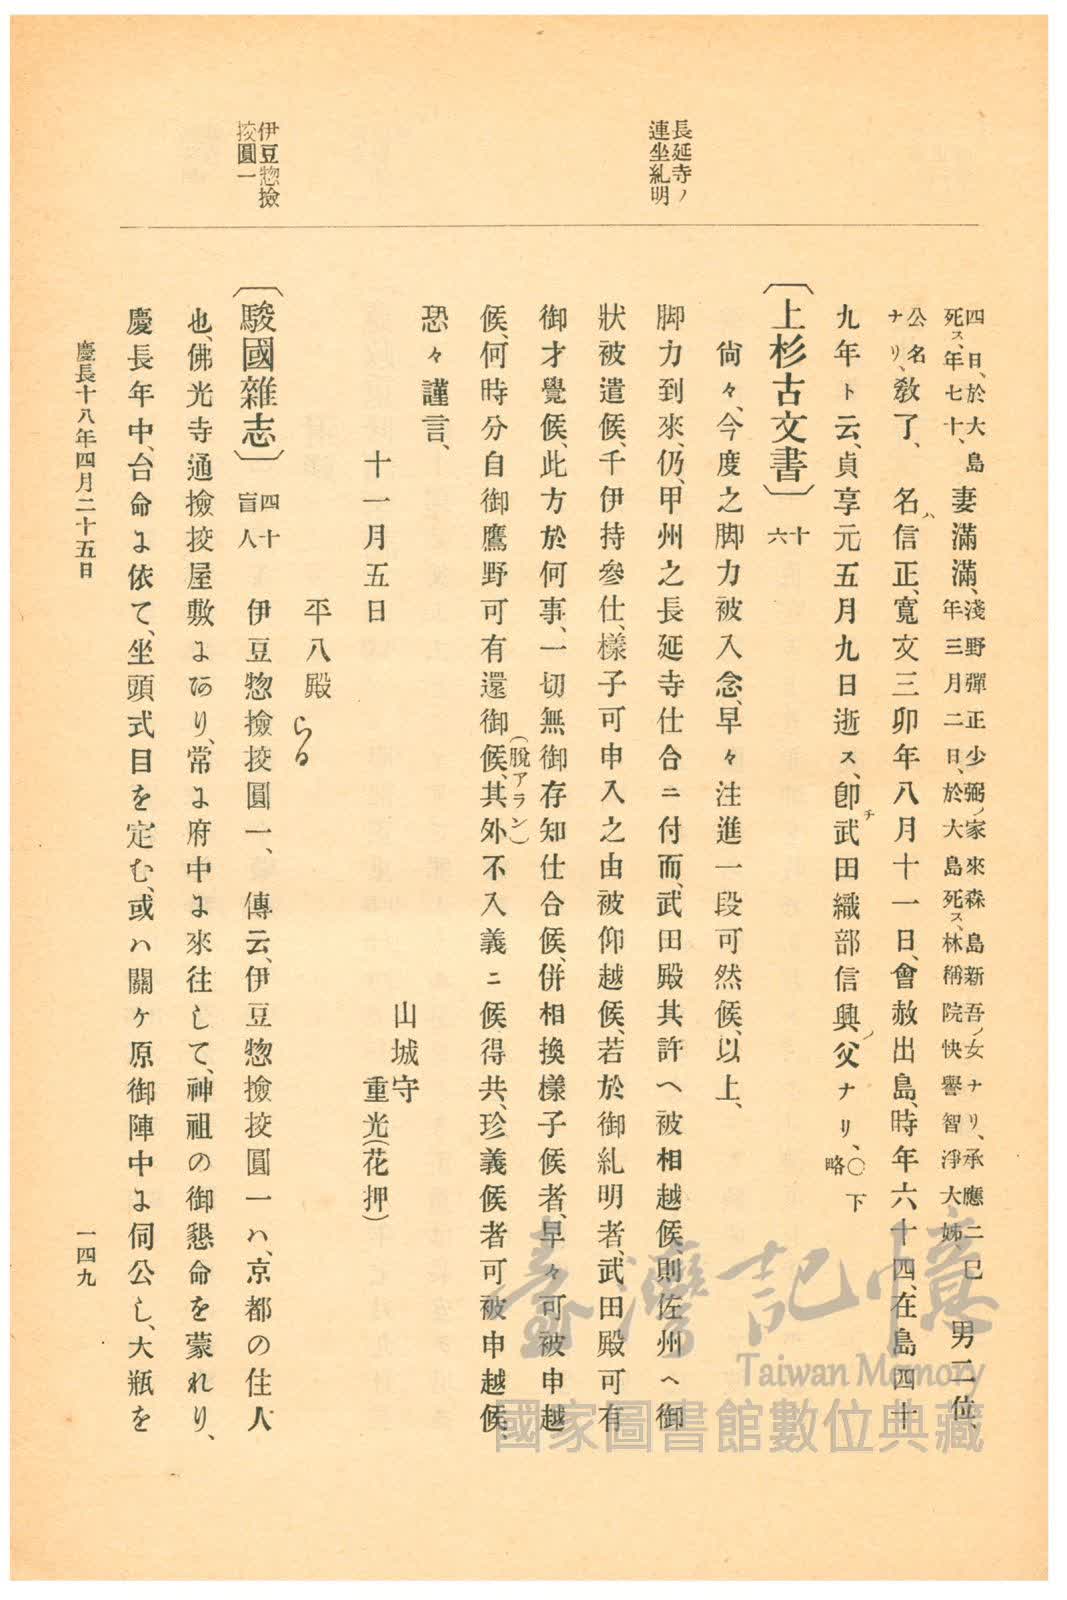 長延寺ノ
連坐糺明
伊豆惣撿
挍圓一
四日、於大島死ス、年七十、妻滿滿、淺野彈正少弼ノ家來森島新吾ノ女ナリ、承應二巳年三月二日、於大島死ス、林稱院快譽智淨大姉男二位、
公名ナリ、教了、名ハ信正、寬文三卯年八月十一日、會赦出島、時年六十四、在島四十
九年ト云、貞享元五月九日逝ス、卽チ武田織部信興ノ父ナリ、〇下略
〔上杉古文書〕十六
尙々、今度之脚力被入念、早々注進一段可然候、以上、
脚力到來、仍、甲州之長延寺仕合ニ付而、武田殿其許へ被相越候則佐州へ御
狀被遣候、千伊持參仕、樣子可申入之由被仰越候、若於御糺明者、武田殿可有
御才覺候、此方於何事、一切無御存知仕合候、併相換樣子候者、早々可被申越
候、何時分自御鷹野可有還御候、其外不入義ニ候(脫アラン)得共、珍義候者可被申越候、
恐々謹言、
十一月五日
山城守
重光(花押)
平八殿
〔駿國雜志〕四十盲人
伊豆惣撿挍圓一、傳云、伊豆惣撿挍圓一ハ、京都の住人
也、佛光寺通撿挍屋敷よあり、常よ府中よ來往して、神祖の御懇命を蒙れり、
慶長年中、台命よ依て、坐頭式目を定む、或ハ關ケ原御陣中よ伺公し、大瓶を
慶長十八年四月二十五日
一四九
臺灣記憶
Taiwan Memory
國家圖書館數位典藏